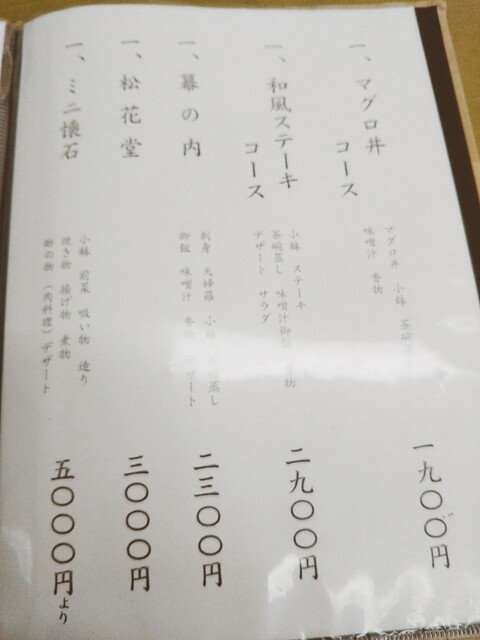 一、マグロ丼
コース
マグロ丼 小鉢 茶碗蒸し
味噌汁 香物
一九〇〇円
一、和風ステーキ
コース
小鉢 ステーキ
茶碗蒸し 味噌汁 御飯 香物
デザート サラダ
二九〇〇円
一、幕の内
刺身 天婦羅 小鉢 茶碗蒸し
御飯 味噌汁 香物 デザート
二三〇〇円
一、松花堂
三〇〇〇円
一、ミニ懐石
小鉢 前菜 吸い物 造り
焼き物 揚げ物 煮物
酢の物 (肉料理) デザート
五〇〇〇円より